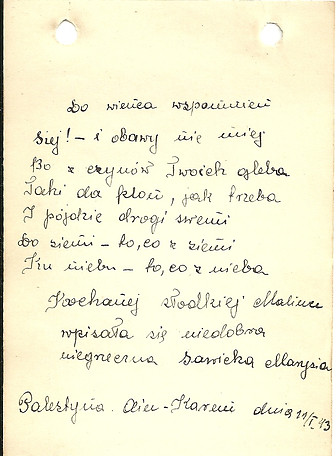 Do wieńca wspomnień
Siej! - i obawy nie miej
Bo z czynów Twoich gleba
Taki da plon, jak trzeba
I pójdzie drogi swemi
Do ziemi - to, co z ziemi
Ku niebu - to, co z nieba
Kochanej słodkiej Malince
wpisała się niedobra
niegrzeczna Sawicka Marysia
Palestyna. Ain-Karem dnia 11/I.43